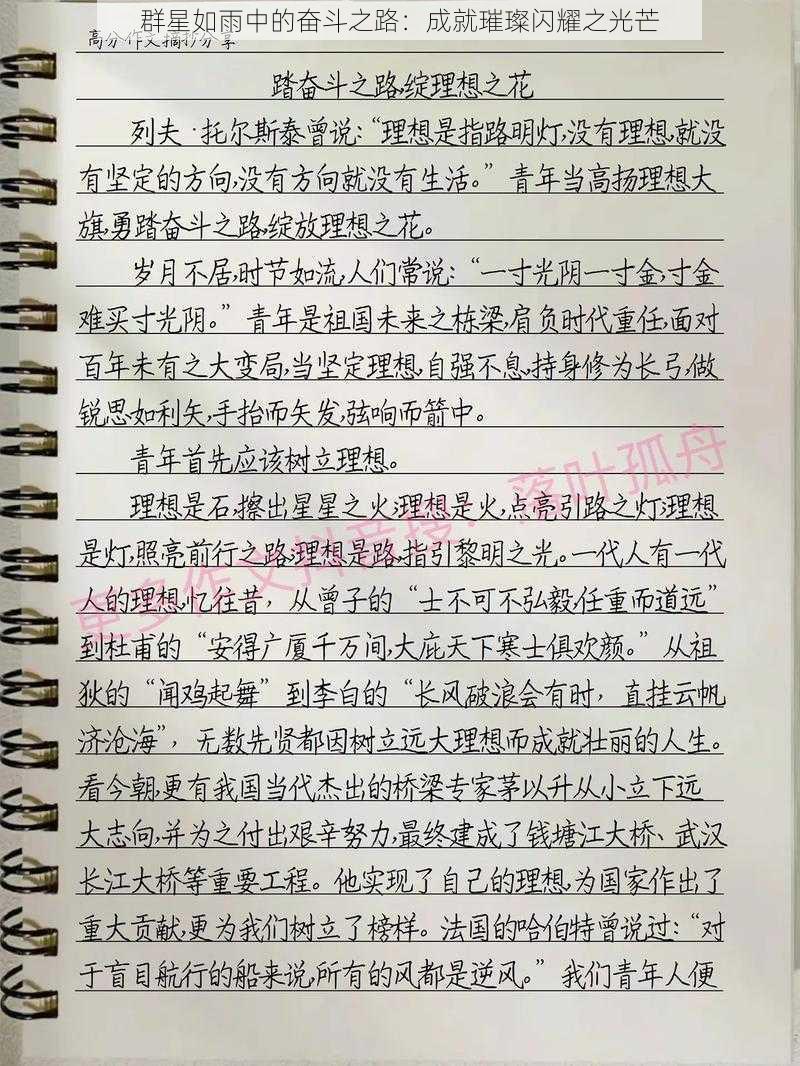 群星如雨中的奋斗之路：成就璀璨闪耀之光芒
高分作文摘抄分享
踏奋斗之路,绽理想之花
列夫·托尔斯泰曾说：“理想是指路明灯,没有理想,就没
有坚定的方向,没有方向就没有生活。”青年当高扬理想大
旗,勇踏奋斗之路,绽放理想之花。
岁月不居,时节如流,人们常说：“一寸光阴一寸金,寸金
难买寸光阴。”青年是祖国未来之栋梁,肩负时代重任,面对
百年未有之大变局,当坚定理想,自强不息,持身修为长弓,做
锐思如利矢,手抬而矢发,弦响而箭中。
青年首先应该树立理想。
理想是石,擦出星星之火;理想是火,点亮引路之灯;理想
是灯,照亮前行之路;理想是路,指引黎明之光。一代人有一代
人的理想,忆往昔，从曾子的“士不可不弘毅,任重而道远”
到杜甫的“安得广厦千万间,大庇天下寒士俱欢颜。”从祖
狄的“闻鸡起舞”到李白的“长风破浪会有时，直挂云帆
济沧海”，无数先贤都因树立远大理想而成就壮丽的人生。
看今朝,更有我国当代杰出的桥梁专家茅以升从小立下远
大志向,并为之付出艰辛努力,最终建成了钱塘江大桥、武汉
长江大桥等重要工程。他实现了自己的理想,为国家作出了
重大贡献,更为我们树立了榜样。法国的哈伯特曾说过：“对
于盲目航行的船来说,所有的风都是逆风。”我们青年人便
更多作文抖音搜：落叶孤舟